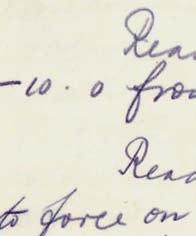 Rea
-10.0 from
Rea
to force on